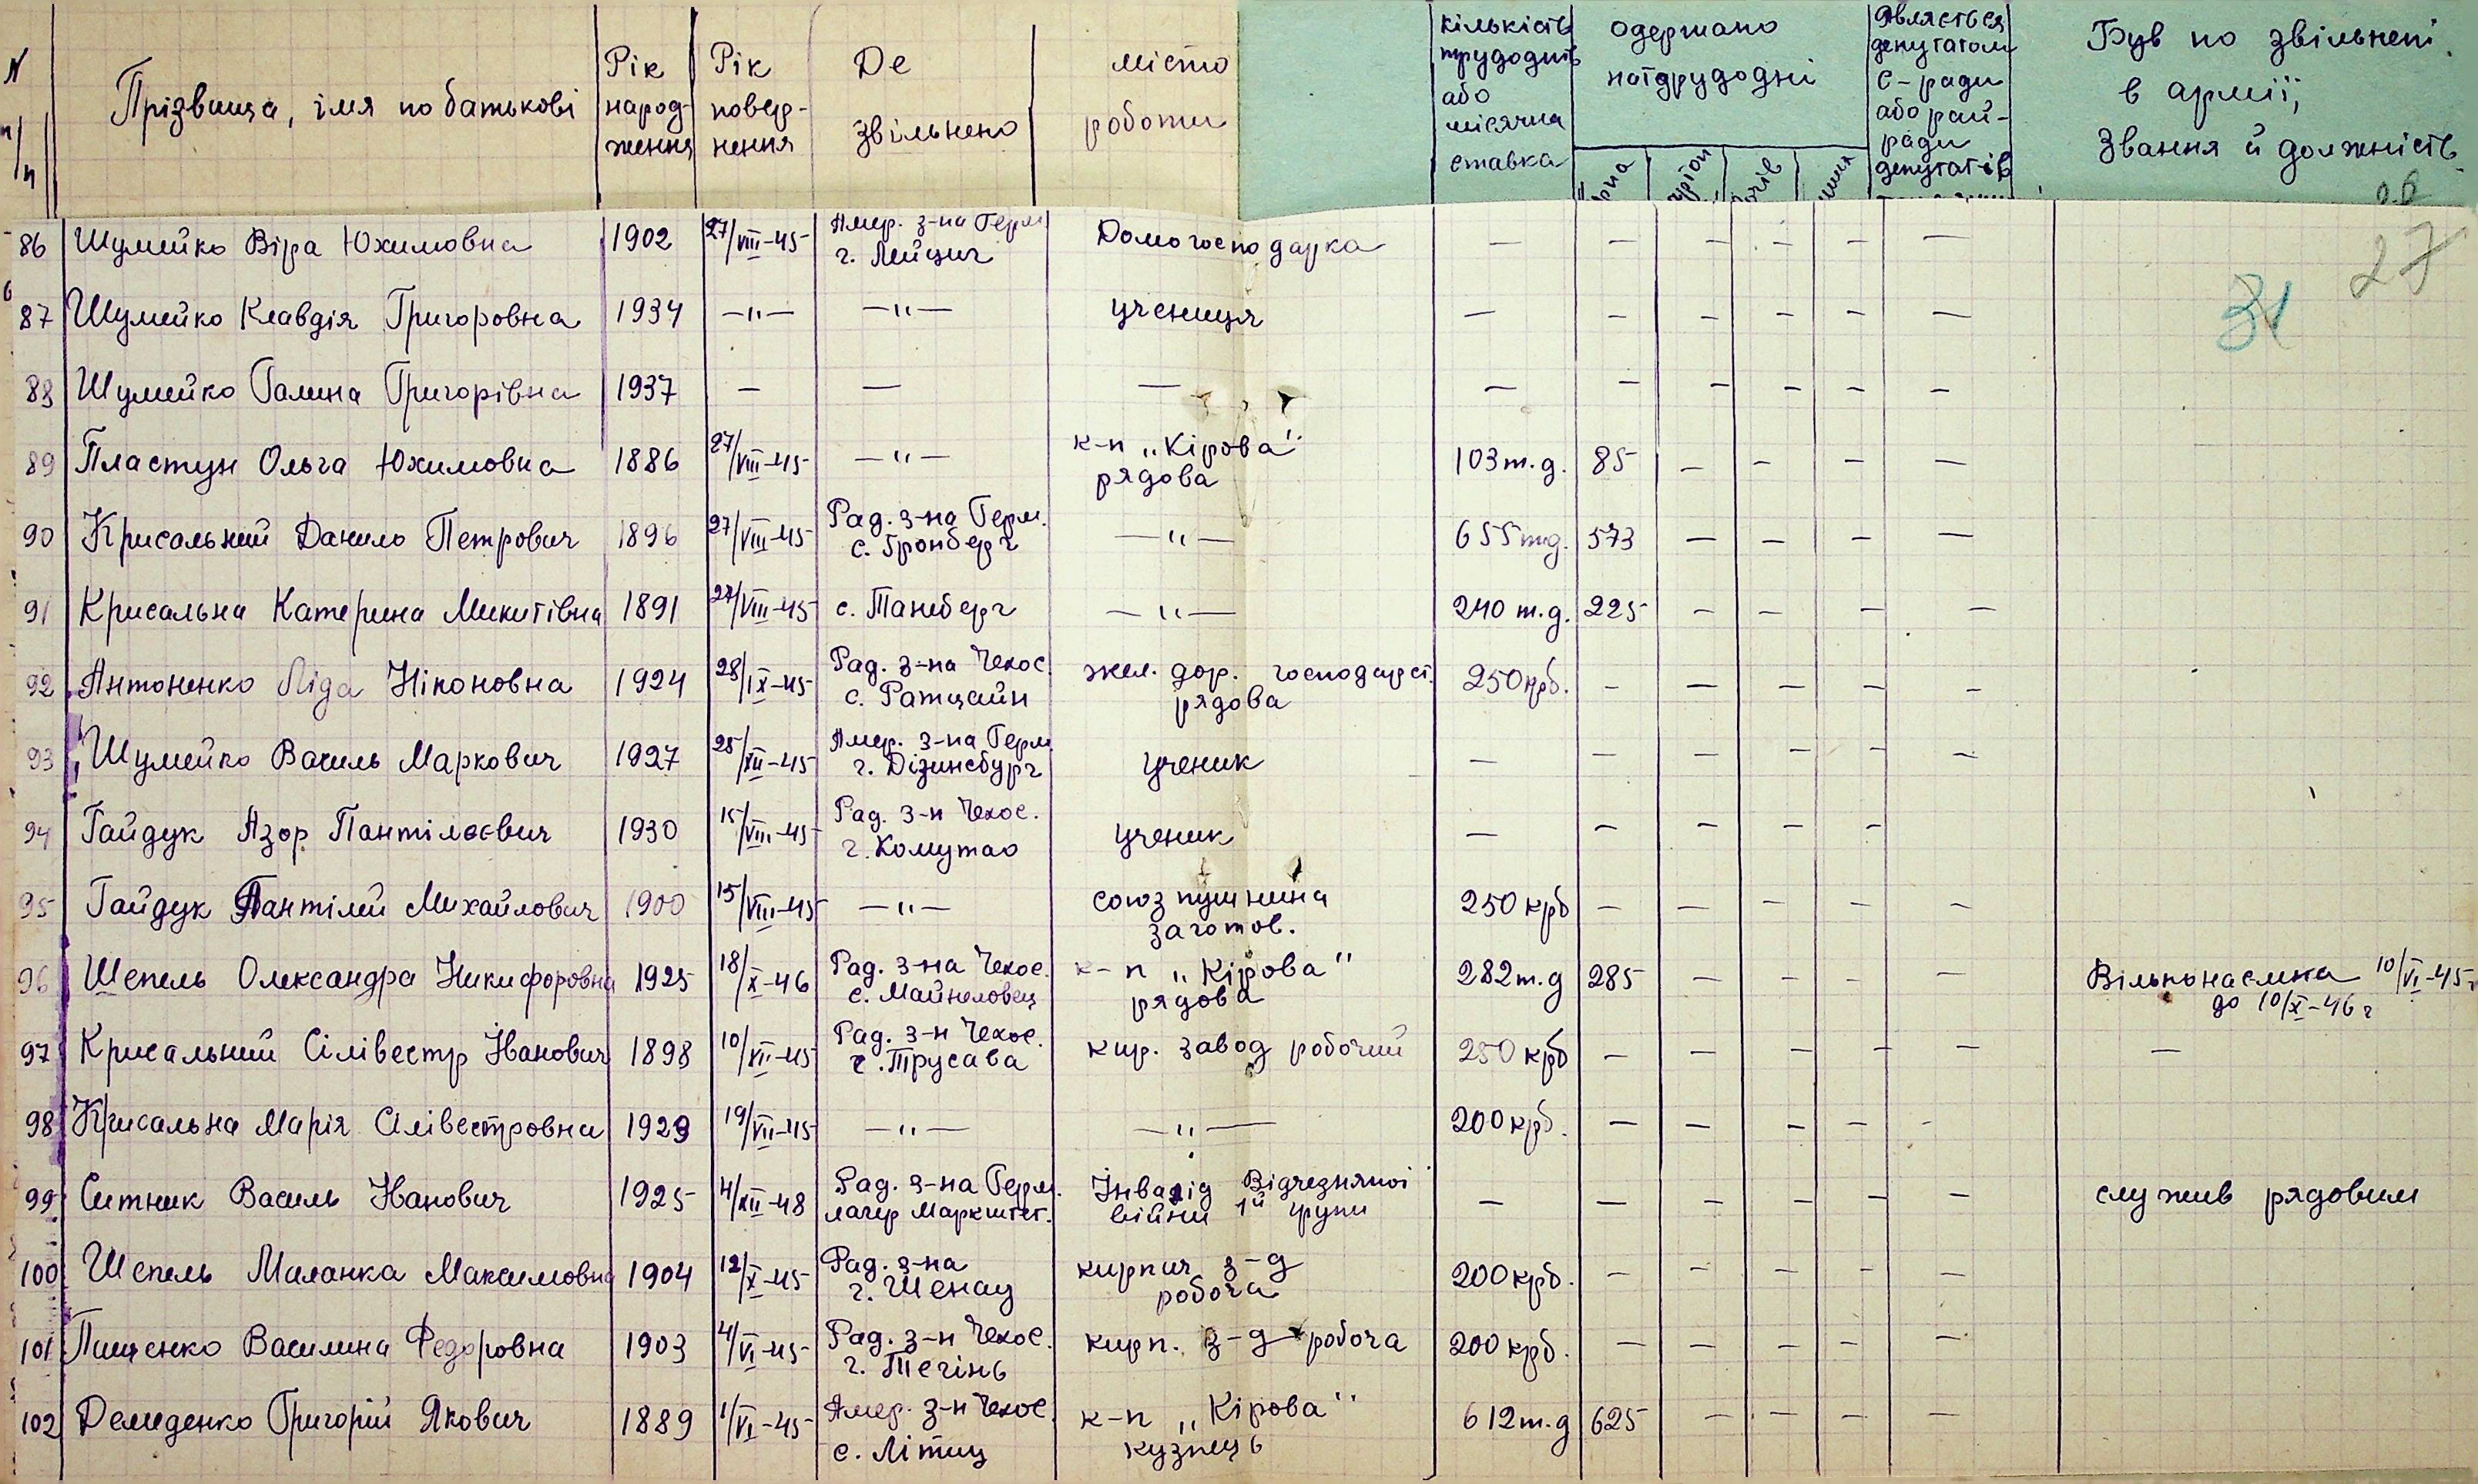 N п/п Прізвища, імя по батькові Рік народження Рік повернення Де звільнено місто роботи кількість трудоднів або місячна ставка одержано на трудодні являється депутатом с-ради або рай-ради депутатів Був по звільнені в армії, звання й должність
27
31
86 Шумейко Віра Юхимовна 1902 27/VIII-45 Амер. з-на Герм г. Лейциг Домогосподарка — — — — — —
87 Шумейко Клавдія Григоровна 1934 —"— —"— учениця — — — — — —
88 Шумейко Галина Григорівна 1937 — — — — — — — — —
89 Пластун Ольга Юхимовна 1886 27/VIII-45 —"— к-п "Кірова" рядова 103 т.д. 85 — — — —
90 Крисальний Данило Петрович 1896 27/VIII-45 Рад. з-на Герм. с. Гронберг —"— 655 т.д. 573 — — — —
91 Крисальна Катерина Микитівна 1891 27/VIII-45 с. Танеберг —"— 240 т.д. 225 — — — —
92 Антоненко Ліда Ніконовна 1924 28/IX-45 Рад. з-на Чехос. с. Ратцайн жел. дор. господарст. рядова 250 крб. — — — — —
93 Шумейко Василь Маркович 1927 25/XII-45 Амер. з-на Герм г. Дізинсбург ученик — — — — — —
94 Гайдук Азор Пантілєєвич 1930 15/VIII-45 Рад. з-н Чехос. г. Комутао ученик — — — — —
95 Гайдук Пантілей Михайлович 1900 15/VIII-45 —"— союз пушнина заготов. 250 крб — — — — —
96 Шепель Олександра Никифоровна 1925 18/X-46 Рад. з-на Чехос. с. Майнеловец к-п "Кірова" рядова 282 т.д 285 — — — — Вільнонаємна 10/VI-45 г до 10/X-46 г
97 Крисальний Сілівестр Іванович 1898 10/VII-45 Рад. з-н Чехос. г. Трусава кир. завод робочий 250 крб — — — — — —
98 Крисальна Марія Сілівестровна 1929 19/VII-45 —"— —"— 200 крб. — — — — —
99 Ситник Василь Іванович 1925 4/XII-48 Рад. з-на Герм. лагер Маркштет. Інвалід Відчезняної війни 1й групи — — — — — — служив рядовим
100 Шепель Маланка Максимовна 1904 12/X-45 Рад. з-на г. Шенау кирпич. з-д робоча 200 крб. — — — — —
101 Пащенко Василина Федоровна 1903 4/VI-45 Рад. з-н Чехос. г. Течінь кирп. з-д робоча 200 крб. — — — — —
102 Демиденко Григорій Якович 1889 1/VI-45 Амер. з-н Чехос. с. Літиц к-п "Кірова" кузнець 612 т.д 625 — — — —